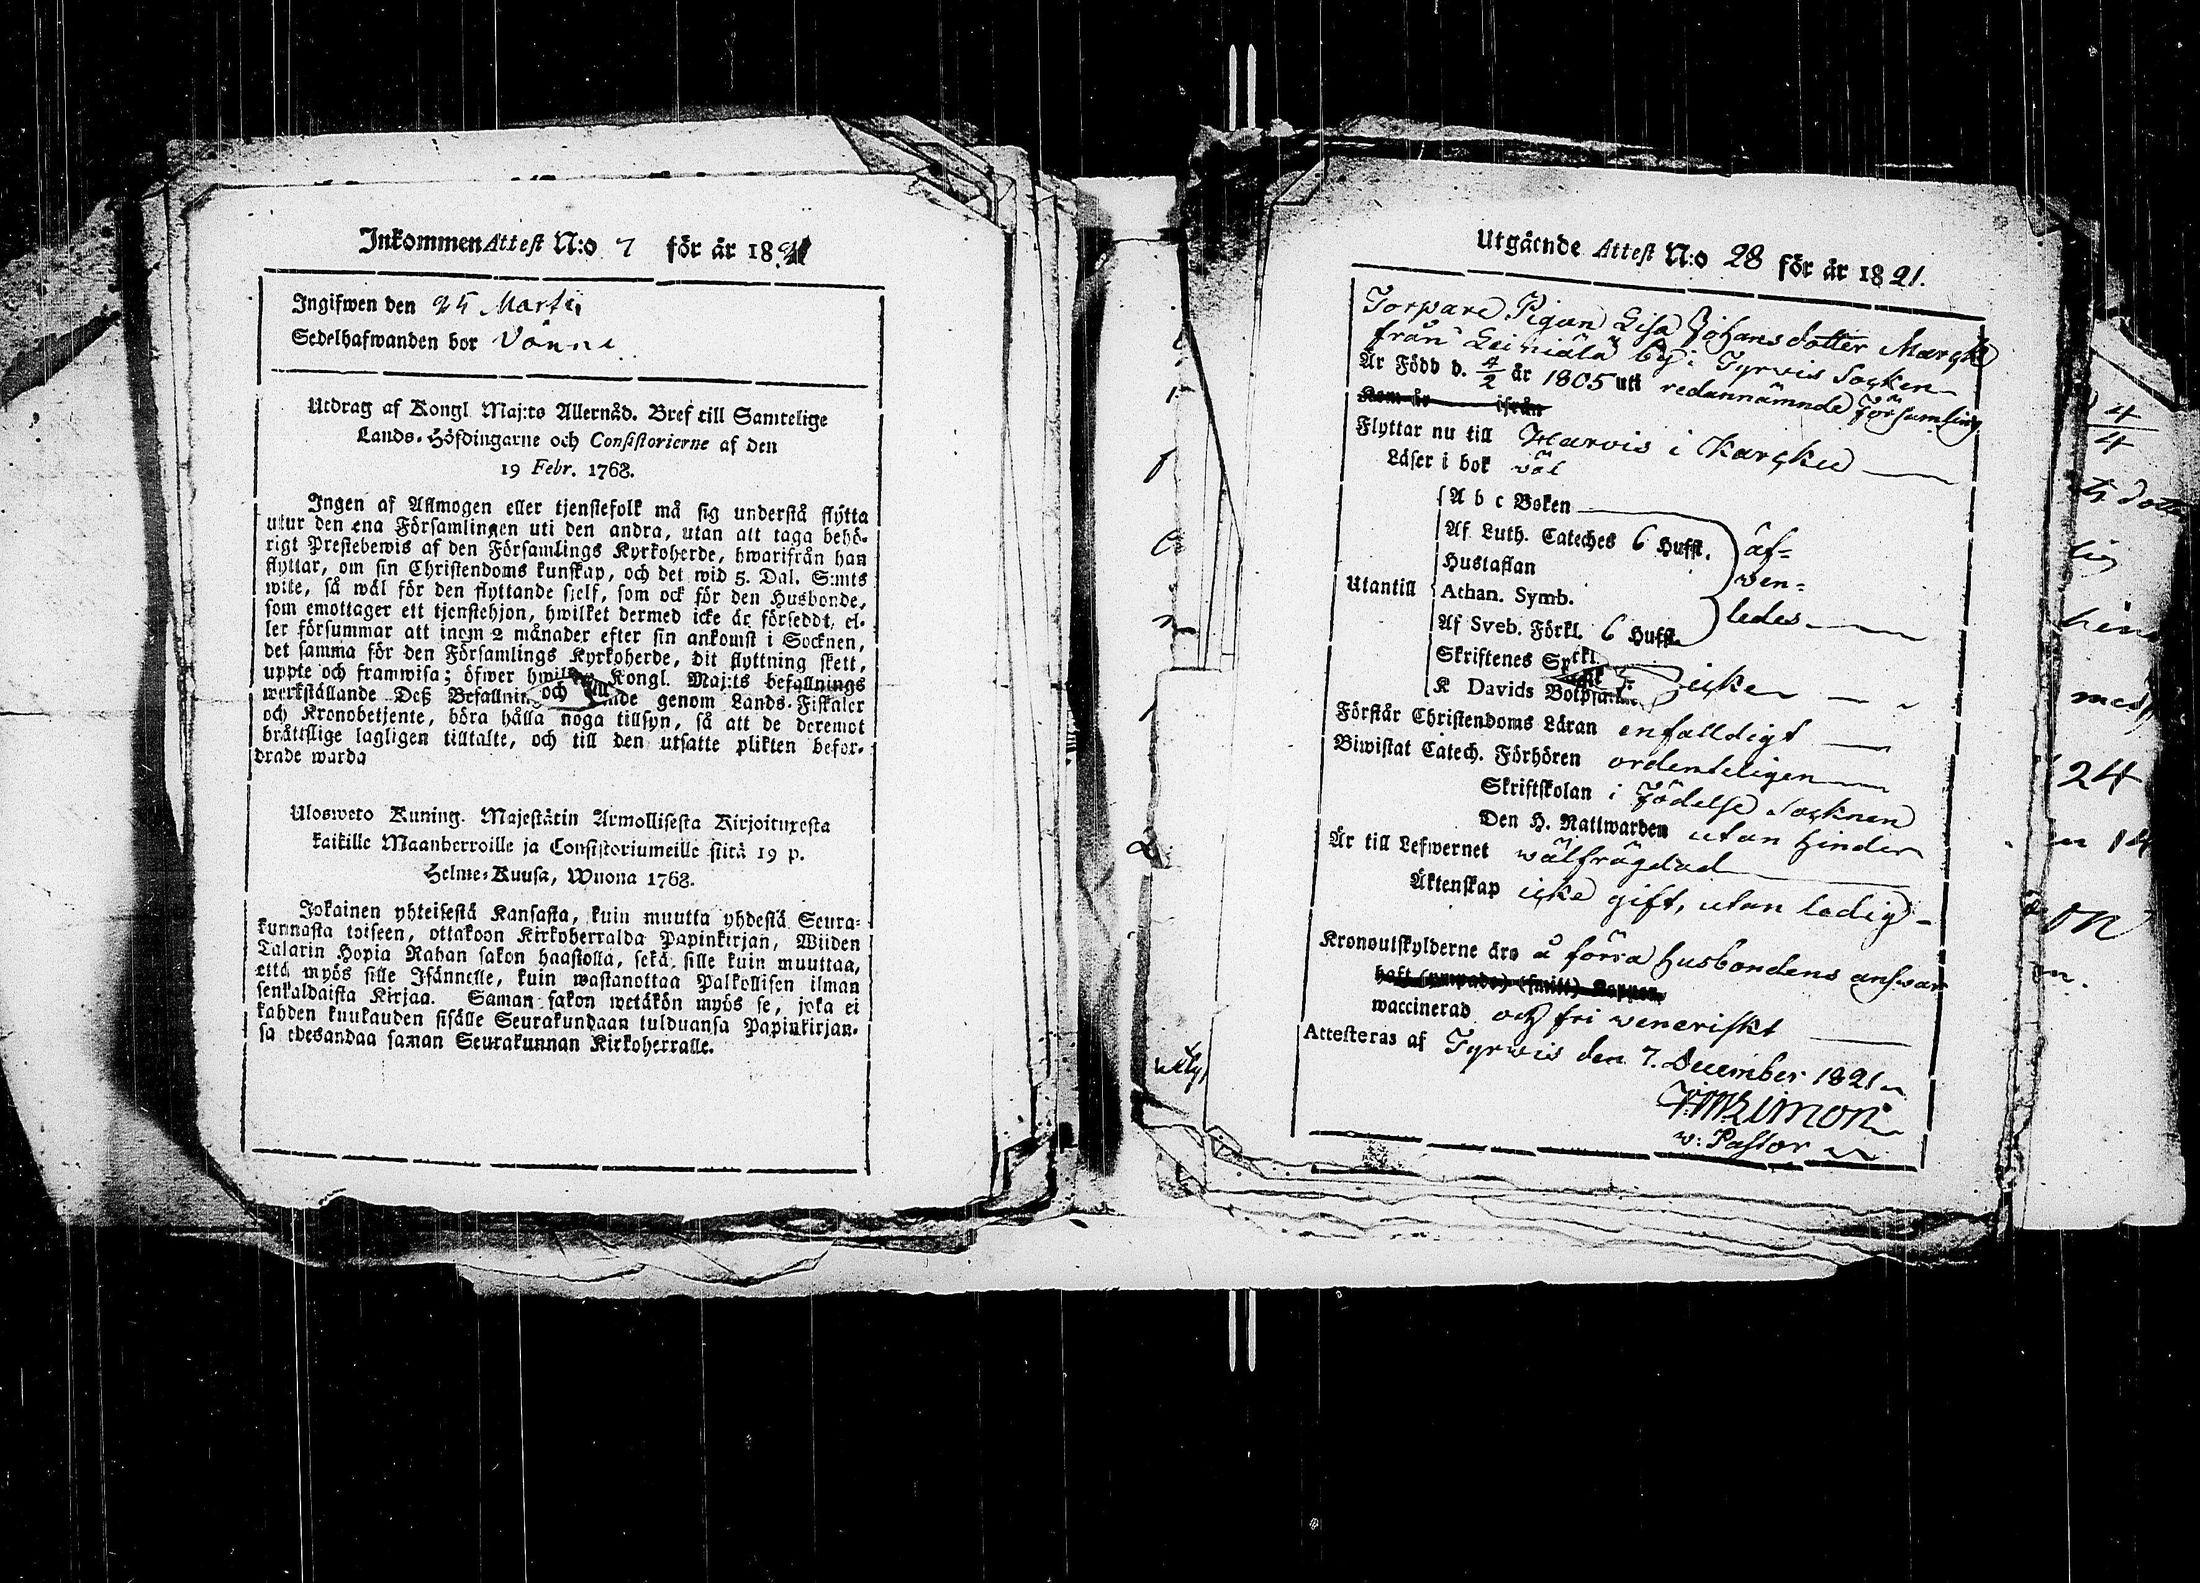 Inkommen Attest N:o 7 för år 18
Ingifwen den 25 Martii
Sedelhafwanden bor Vänni
Utdrag af Kongl. Maj:ts Allernåd. Bref till Samtelige
Lands-Höfdingarne och Consistorierne af den
19 Febr. 1768.
Ingen af Allmogen eller tjenstefolk må sig understå flytta
utur den ena Församlingen uti den andra, utan att taga behö-
rigt Prestebewis af den Församlings Kyrkoherde, hwarifrån han
flyttar, om sin Christendoms kunskap, och det wid 5. Dal. S:mts
wite, så wäl för den flyttande sielf, som ock för den Husbonde,
som emottager ett tjenstehjon, hwilket dermed icke är försedt, el-
ler försummar att inom 2 månader efter sin ankomst i Socknen,
det samma för den Församlings Kyrkoherde, dit flyttning skett,
uppte och framwisa; öfwer Kongl. Maj:ts befallnings
werkställande Deß och genom Lands-Fiskaler
och Kronobetjente, böra hålla noga tillsyn, så att de deremot
bråttslige lagligen tilltalte, och till den utsatte plikten befor-
drade warda
Ulosweto Kuning. Majestätin Armollisesta Kirjoituxesta
kaikille Maanherroille ja Consistoriumeille siitä 19 p.
Helme-Kuusa, Wuona 1768.
Jokainen yhteisestä Kansasta, kuin muutta yhdestä Seura-
kunnasta toiseen, ottakoon Kirkoherralda Papinkirjan, Wiiden
Talarin Hopia Rahan sakon haastolla, sekä sille kuin muuttaa,
että myös sille Isännelle, kuin wastanottaa Palkollisen ilman
senkaldaista Kirjaa. Saman sakon wetäkön myös se, joka ei
kahden kuukauden sisälle Seurakundaan tulduansa Papinkirjan-
sa edesandaa saman Seurakunnan Kirkoherralle.
Utgående Attest N:o 28 för år 1821.
Torpare Pigan Lisa Johansdotter
från Leiniälä by i Tyrvis Socken
Är Född d. 4/2 år 1805 uti redannämnde Församling
Kom år ifrån
Flyttar nu till Harvis i Karkku
Läser i bok väl
A b c Boken
Af Luth. Cateches 6 Hufst. äf-
Hustaflan wen-
Utantill Athan. Symb.
Af Sveb. Förkl. 6 Hufst. ledes
Skriftenes
K Davids Botpsalm icke
Förstår Christendoms Läran enfalldigt
Biwistat Catech. Förhören ordenteligen
Skriftskolan i Födelse Socknen
Den H. Nattwarden utan hinder
Är till Lefwernet wälfrägdad
Äktenskap icke gift, utan ledig
Kronoutskylderne äro å förra husbondens answar
haft (ympade) (smitt) Koppor
waccinerad och fri veneriskt
Attesteras af Tyrvis den 7. December 1821
v: Pastor
4
4
24